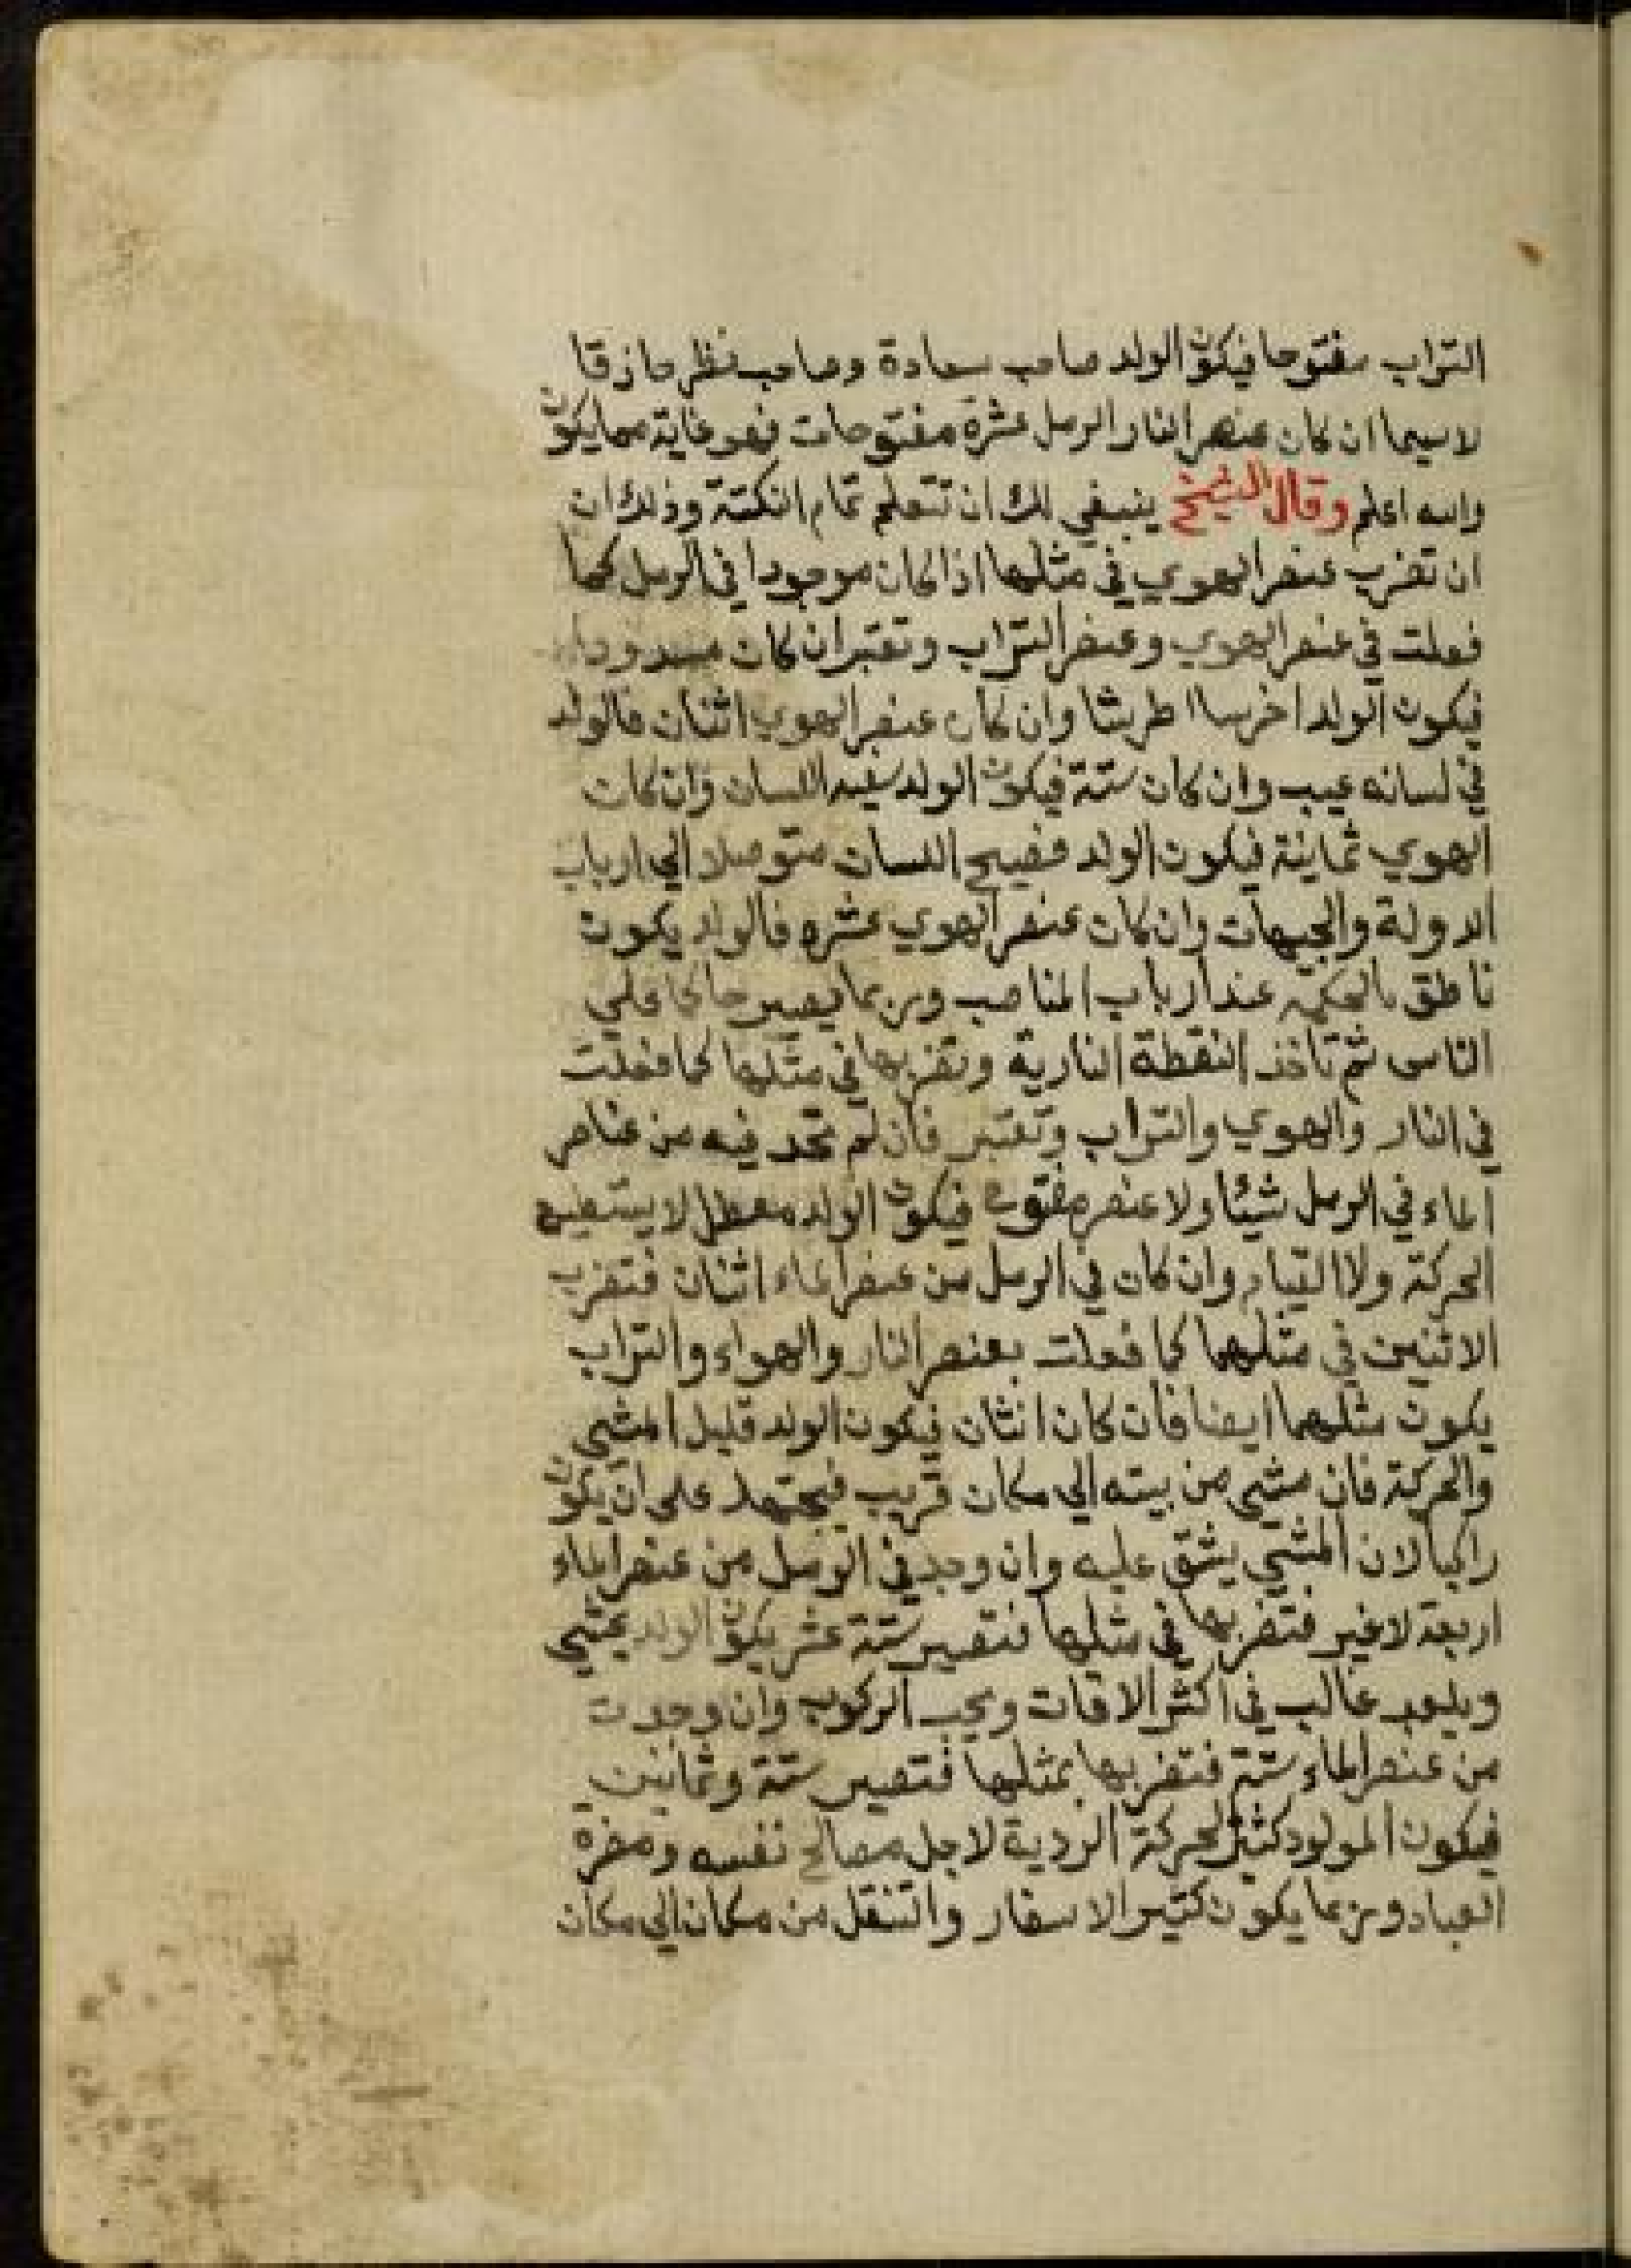 التراب مفتوحا فيكون الولد صاحب سعادة وصاحب نظر حازقا
لاسيما ان كان عنصر النار الرمل عشرة مفتوحات فهو غاية مما يكون
والله اعلم وقال الشيخ ينبغي لك ان تتعلم تمام النكتة وذلك ان
ان تضرب عنصر الهوي في مثلها اذا كان موجودا في الرمل كما
فعلت في عنصر الهوي وعنصر التراب وتعتبر ان كان مسدودا
فيكون الولد اخرسا اطرشا وان كان عنصر الهوي اثنان فالولد
في لسانه عيب وان كان ستة فيكون الولد سفيه اللسان وان كان
الهوي ثمانية فيكون الولد فصيح اللسان متوصلا الي ارباب
الدولة والجيهات وان كان عنصر الهوي عشره فالولد يكون
ناطق بالحكمه عند ارباب المناصب وربما يصير حاكما علي
الناس ثم تاخذ النقطة النارية وتضربها في مثلها كما فعلت
في النار والهوي والتراب وتعتبر فان لم تجد فيه من عناصر
الماء في الرمل شيئا ولا عنصر مفتوح فيكون الولد معطل لا يستطيع
الحركة ولا القيام وان كان في الرمل من عنصر الماء اثنان فتضرب
الاثنين في مثلهما كما فعلت بعنصر النار والهواء والتراب
يكون مثلهما ايضا فان كان اثنان فيكون الولد قليل المشي
والحركة فان مشي من بيته الي مكان قريب فيجتهد علي ان يكون
راكبا لان المشي يشق عليه وان وجد في الرمل من عنصر الماء
اربعة لا غير فتضربها في مثلها فتصير ستة عشر يكون الولد يمشي
ويلعب غالب في اكثر الاقات ويحب الركوب وان وجدت
من عنصر الماء ستة فتضربها بمثلها فتصير ستة وثمانين
فيكون المولود كثير الحركة الردية لاجل مصالح نفسه ومضرة
العباد وربما يكون كثير الاسفار والتنقل من مكان الي مكان